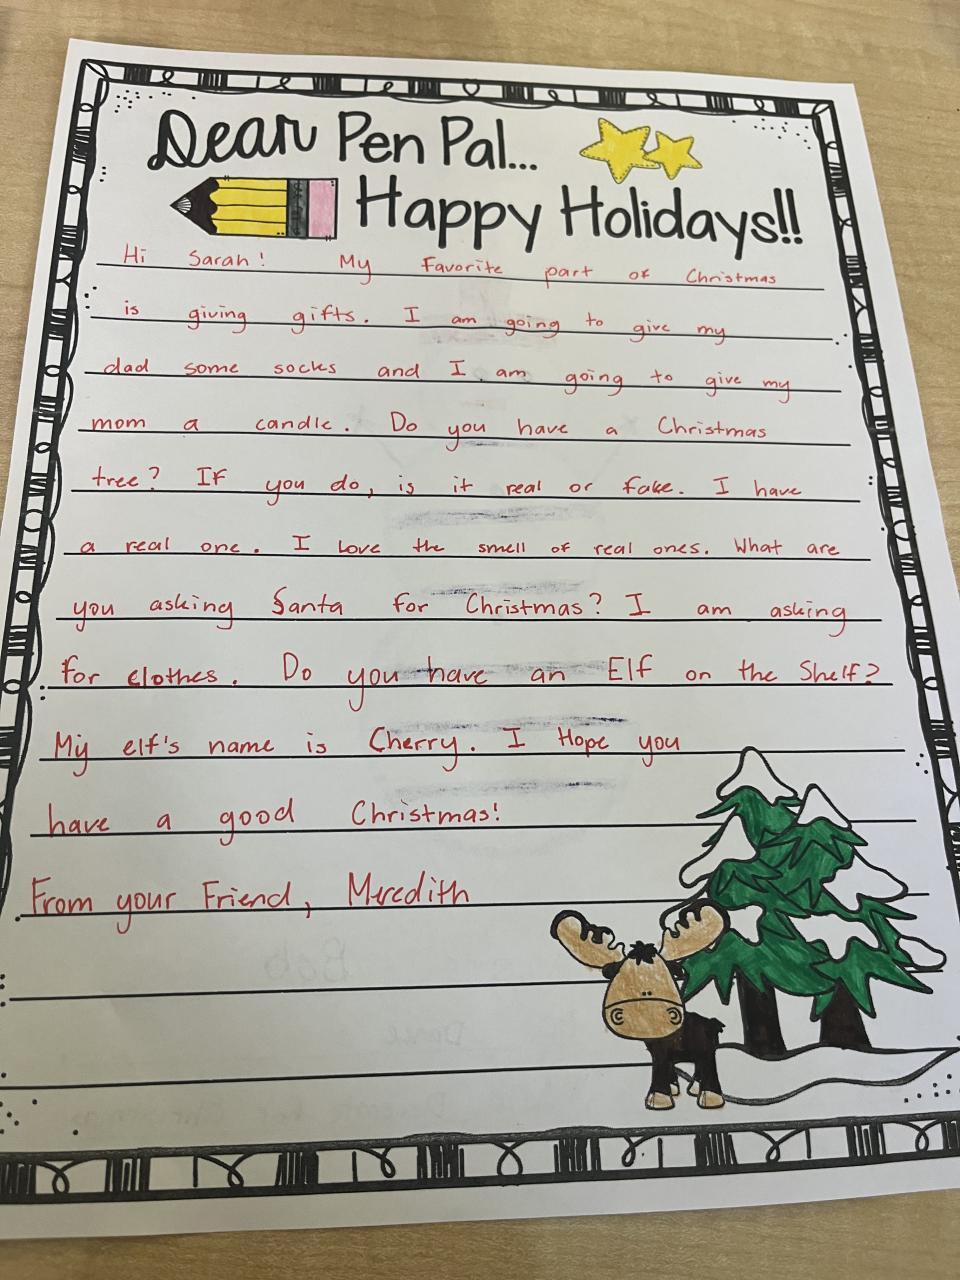 Dear Pen Pal...
Happy Holidays!!
Hi Sarah! My Favorite part of Christmas
is giving gifts. I am going to give my
dad some socks and I am going to give my
mom a candle. Do you have a Christmas
tree? If you do, is it real or fake. I have
a real one. I love the smell of real ones. What are
you asking Santa for Christmas? I am asking
for clothes. Do you have an Elf on the Shelf?
My elf's name is Cherry. I Hope you
have a good Christmas!
From your Friend, Meredith
Bob
Dance